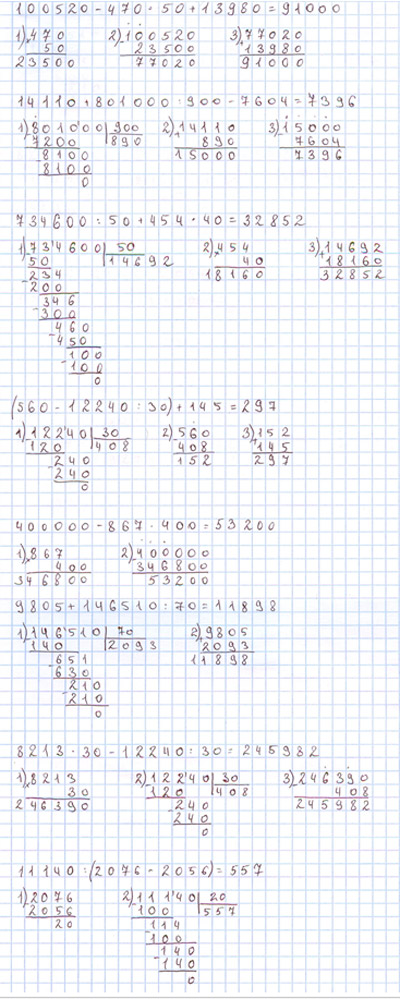 100520 - 470 · 50 + 13980 = 91000
1) × 470 2) - 100520 3) + 77020
50 23500 13980
23500 77020 91000
14110 + 801000 : 900 - 7604 = 7396
1) - 801000 | 900 2) + 14110 3) - 15000
7200 890 890 7604
- 8100 15000 7396
8100
0
734600 : 50 + 454 · 40 = 32852
1) - 734600 | 50 2) × 454 3) + 14692
50 14692 40 18160
- 234 18160 32852
200
- 346
300
- 460
450
- 100
100
0
(560 - 12240 : 30) + 145 = 297
1) - 12240 | 30 2) - 560 3) + 152
120 408 408 145
- 240 152 297
240
0
400000 - 867 · 400 = 53200
1) × 867 2) - 400000
400 346800
346800 53200
9805 + 146510 : 70 = 11898
1) - 146510 | 70 2) + 9805
140 2093 2093
- 651 11898
630
- 210
210
0
8213 · 30 - 12240 : 30 = 245982
1) × 8213 2) - 12240 | 30 3) - 246390
30 120 408 408
246390 - 240 245982
240
0
11140 : (2076 - 2056) = 557
1) - 2076 2) - 11140 | 20
2056 100 557
20 - 114
100
- 140
140
0